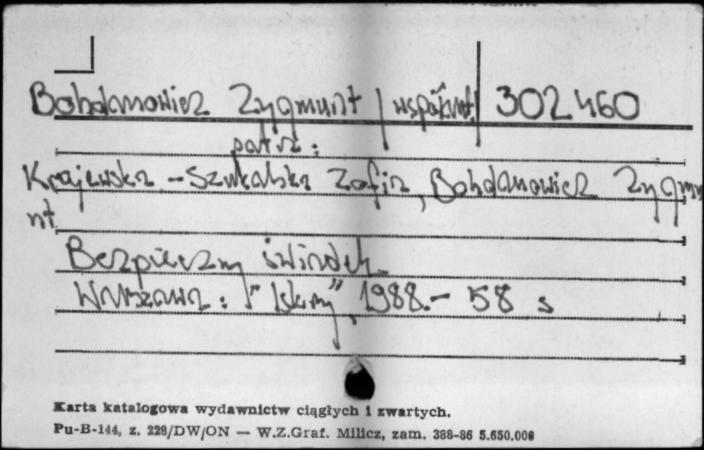 Bohdanowicz Zygmunt /współaut/ 302460
patrz:
Krajewska-Szukalska Zofia, Bohdanowicz Zygmu
nt
Bezpieczny świadek
Warszawa: "Iskry", 1988.- 58 s
Karta katalogowa wydawnictw ciągłych i zwartych.
Pu-B-144, z. 228/DW/ON — W.Z.Graf. Milicz, zam. 388-86 5.650.000